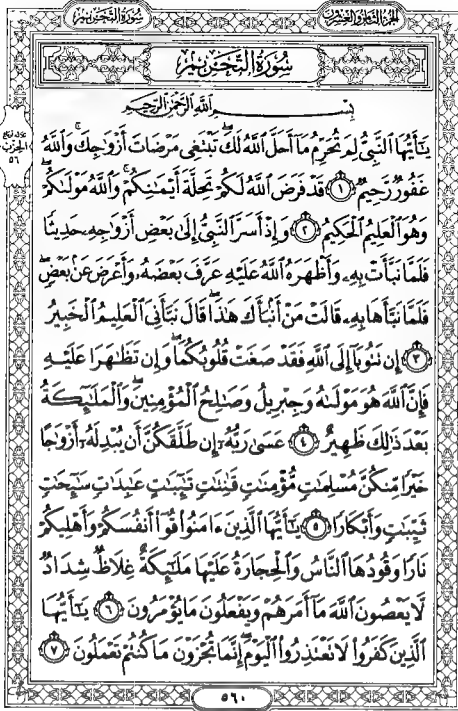 الجزء الثامن والعشرون
سورة التحريم
سُورَةُ التَّحْرِيمِ
بِسْمِ اللَّهِ الرَّحْمَٰنِ الرَّحِيمِ
يَٰٓأَيُّهَا ٱلنَّبِيُّ لِمَ تُحَرِّمُ مَآ أَحَلَّ ٱللَّهُ لَكَۖ تَبْتَغِى مَرْضَاتَ أَزْوَٰجِكَۚ وَٱللَّهُ
غَفُورٌ رَّحِيمٌ ١ قَدْ فَرَضَ ٱللَّهُ لَكُمْ تَحِلَّةَ أَيْمَٰنِكُمْۚ وَٱللَّهُ مَوْلَىٰكُمْۖ
وَهُوَ ٱلْعَلِيمُ ٱلْحَكِيمُ ٢ وَإِذْ أَسَرَّ ٱلنَّبِيُّ إِلَىٰ بَعْضِ أَزْوَٰجِهِۦ حَدِيثًا
فَلَمَّا نَبَّأَتْ بِهِۦ وَأَظْهَرَهُ ٱللَّهُ عَلَيْهِ عَرَّفَ بَعْضَهُۥ وَأَعْرَضَ عَنۢ بَعْضٍۖ
فَلَمَّا نَبَّأَهَا بِهِۦ قَالَتْ مَنْ أَنۢبَأَكَ هَٰذَاۖ قَالَ نَبَّأَنِىَ ٱلْعَلِيمُ ٱلْخَبِيرُ
٣ إِن تَتُوبَآ إِلَى ٱللَّهِ فَقَدْ صَغَتْ قُلُوبُكُمَاۖ وَإِن تَظَٰهَرَا عَلَيْهِ
فَإِنَّ ٱللَّهَ هُوَ مَوْلَىٰهُ وَجِبْرِيلُ وَصَٰلِحُ ٱلْمُؤْمِنِينَۖ وَٱلْمَلَٰٓئِكَةُ
بَعْدَ ذَٰلِكَ ظَهِيرٌ ٤ عَسَىٰ رَبُّهُۥٓ إِن طَلَّقَكُنَّ أَن يُبْدِلَهُۥٓ أَزْوَٰجًا
خَيْرًا مِّنكُنَّ مُسْلِمَٰتٍ مُّؤْمِنَٰتٍ قَٰنِتَٰتٍ تَٰٓئِبَٰتٍ عَٰبِدَٰتٍ سَٰٓئِحَٰتٍ
ثَيِّبَٰتٍ وَأَبْكَارًا ٥ يَٰٓأَيُّهَا ٱلَّذِينَ ءَامَنُوا۟ قُوٓا۟ أَنفُسَكُمْ وَأَهْلِيكُمْ
نَارًا وَقُودُهَا ٱلنَّاسُ وَٱلْحِجَارَةُ عَلَيْهَا مَلَٰٓئِكَةٌ غِلَاظٌ شِدَادٌ
لَّا يَعْصُونَ ٱللَّهَ مَآ أَمَرَهُمْ وَيَفْعَلُونَ مَا يُؤْمَرُونَ ٦ يَٰٓأَيُّهَا
ٱلَّذِينَ كَفَرُوا۟ لَا تَعْتَذِرُوا۟ ٱلْيَوْمَۖ إِنَّمَا تُجْزَوْنَ مَا كُنتُمْ تَعْمَلُونَ ٧
الحزب
٥٦
٥٦٠